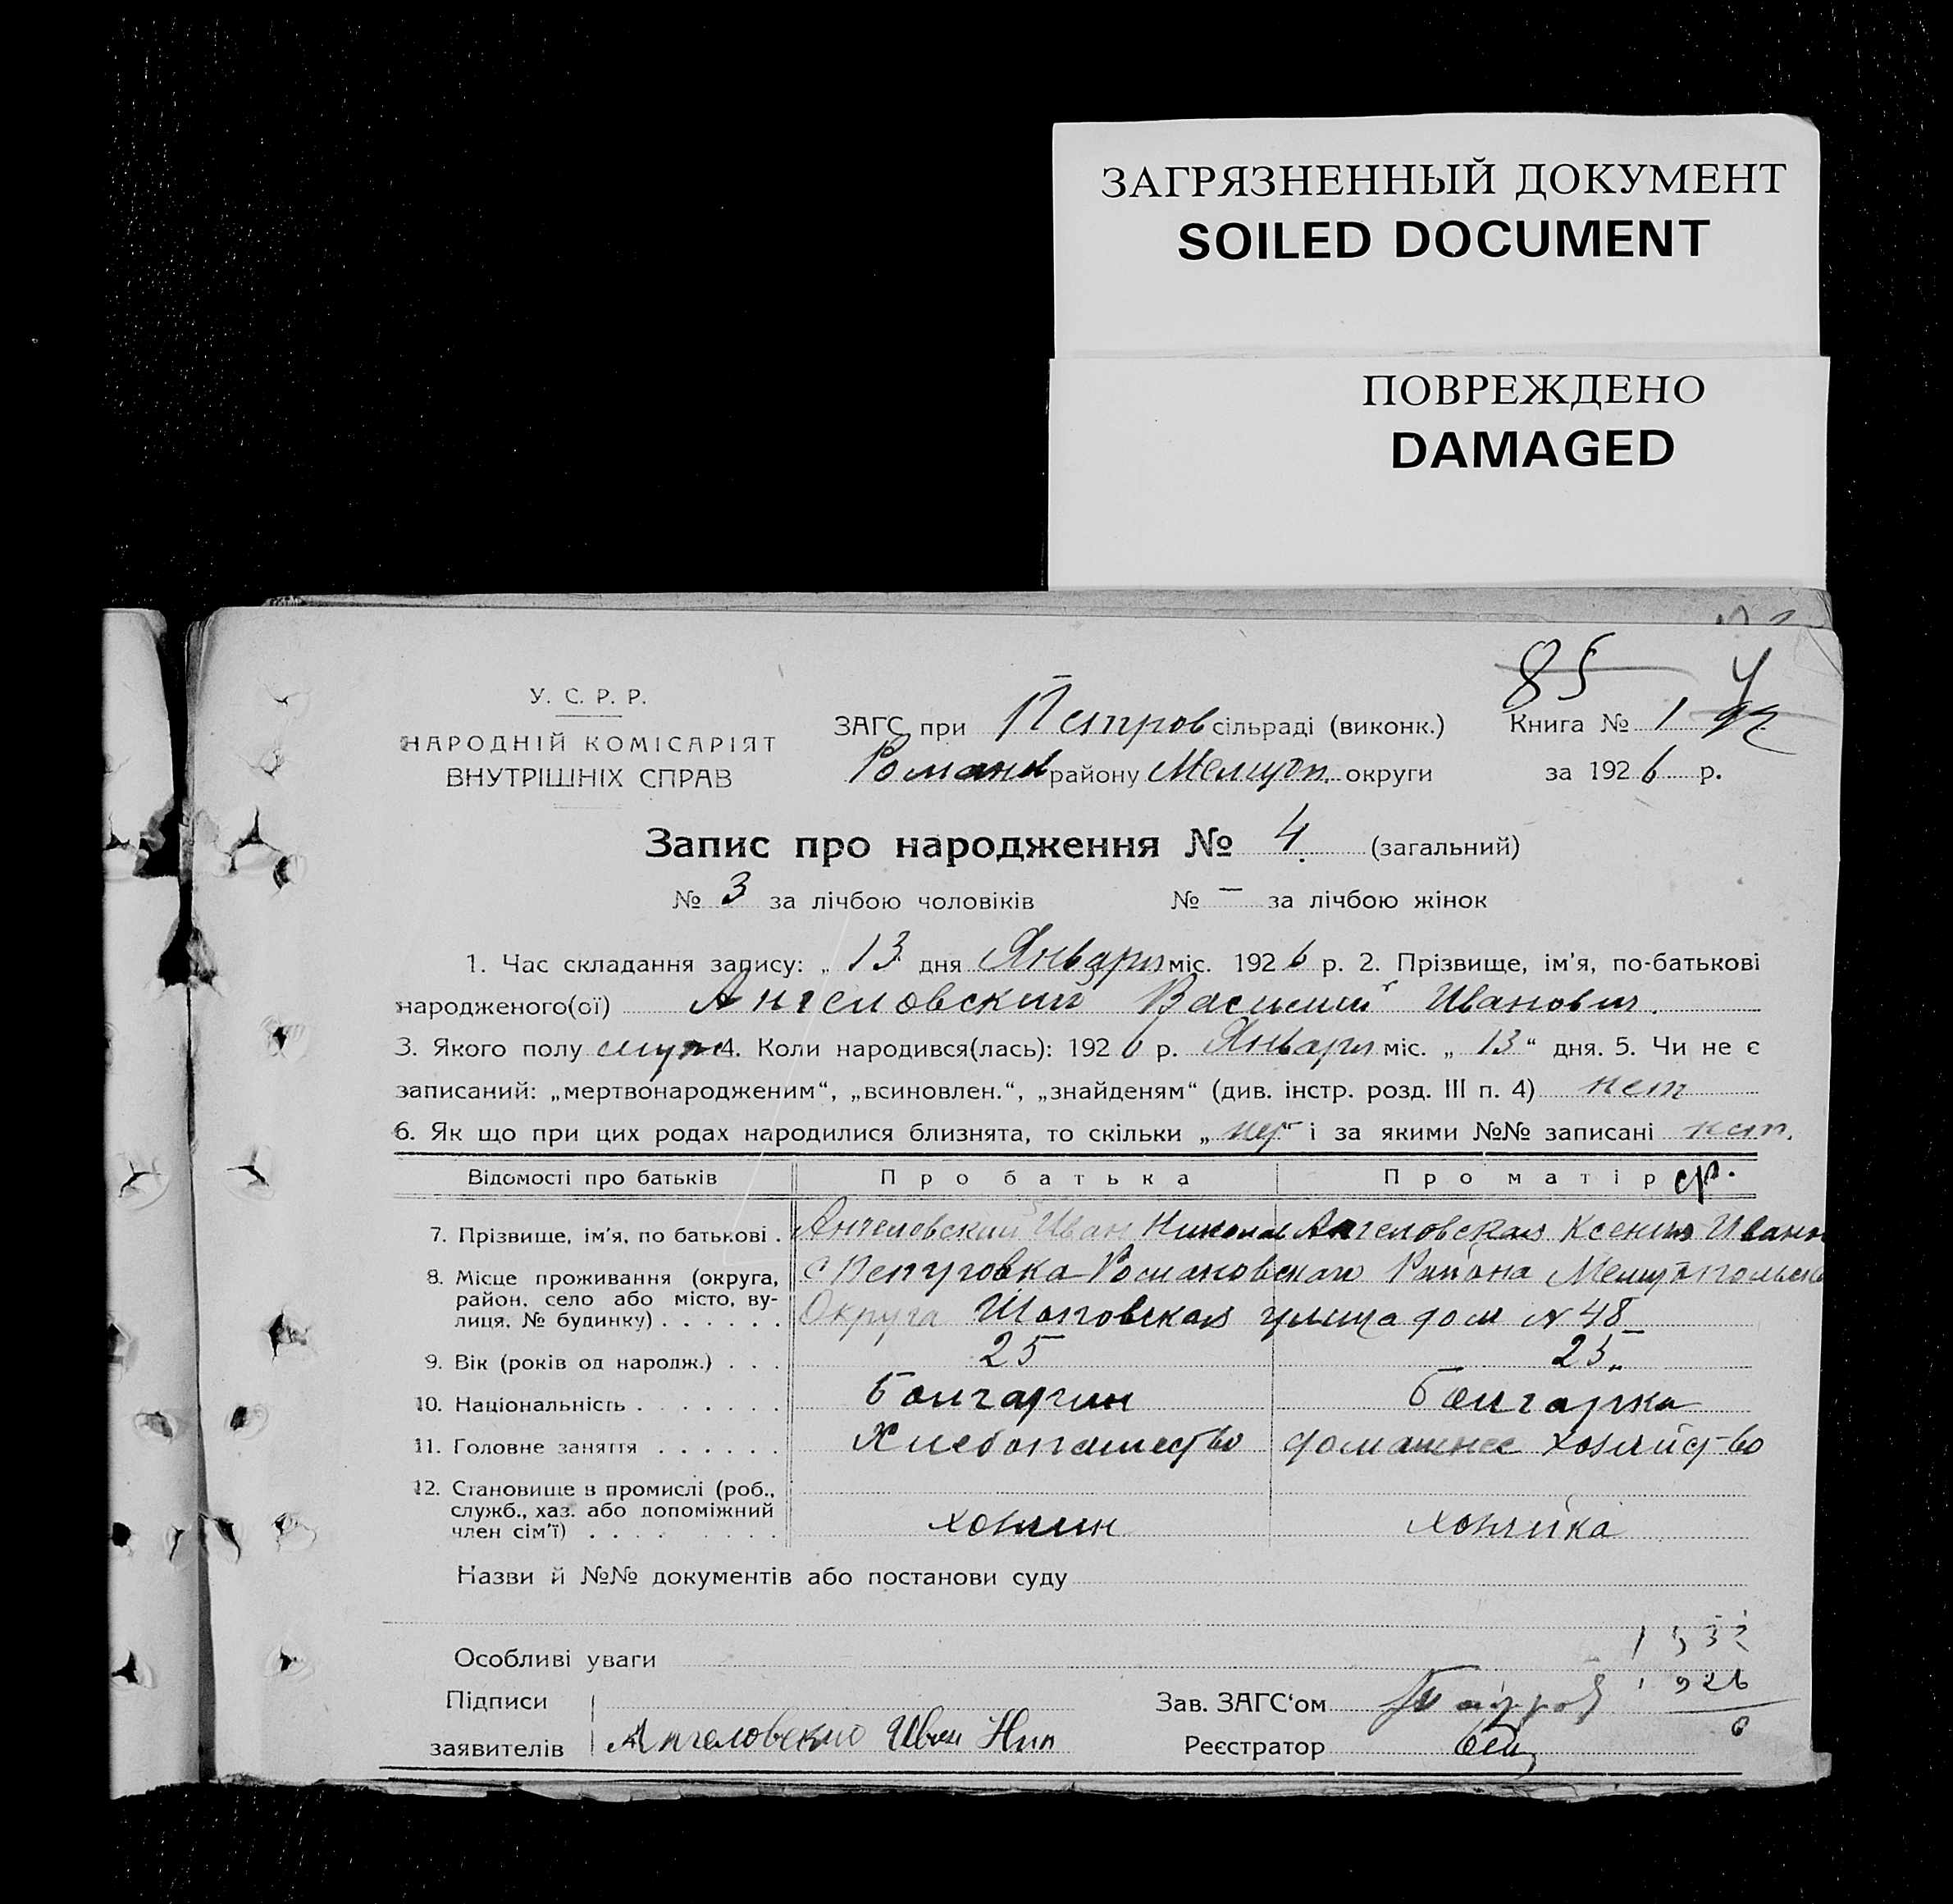 ЗАГРЯЗНЕННЫЙ ДОКУМЕНТ
SOILED DOCUMENT
ПОВРЕЖДЕНО
DAMAGED
85 4
У. С. Р. Р.
НАРОДНІЙ КОМІСАРІЯТ
ВНУТРІШНІХ СПРАВ
ЗАГС при Петров сільраді (виконк.) Книга № 1
Романов району Мелитоп. округи за 1926 р.
Запис про народження № 4. (загальний)
№ 3 за лічбою чоловіків № — за лічбою жінок
1. Час складання запису: „ 13 дня Января міс. 1926 р. 2. Прізвище, ім'я, по-батькові
народженого(ої) Ангеловский Василий Иванович.
3. Якого полу муж 4. Коли народився(лась): 1926 р. Января міс. „ 13 “ дня. 5. Чи не є
записаний: „мертвонародженим“, „всиновлен.“, „знайденям“ (див. інстр. розд. III п. 4) нет
6. Як що при цих родах народилися близнята, то скільки „ нет “ і за якими №№ записані нет.
Відомості про батьків Про батька Про матір
7. Прізвище, ім'я, по батькові . Ангеловский Иван Никола Ангеловская Ксения Иванн
8. Місце проживання (округа, район, село або місто, вулиця, № будинку) . . . . . . с Петровка Романовскаго Района Мелитопольск
Округа Шоповская улица дом № 48
9. Вік (років од народж.) . . . 25 25
10. Національність . . . . . . . болгарин болгарка
11. Головне заняття . . . . . . Хлебопашество домашнее хозяйство
12. Становище в промислі (роб., служб., хаз. або допоміжний член сім'ї) . . . . хозяин хозяйка
Назви й №№ документів або постанови суду
Особливі уваги
1932
1926
6
Підписи Зав. ЗАГС‘ом
заявителів Ангеловский Иван Ник Реєстратор